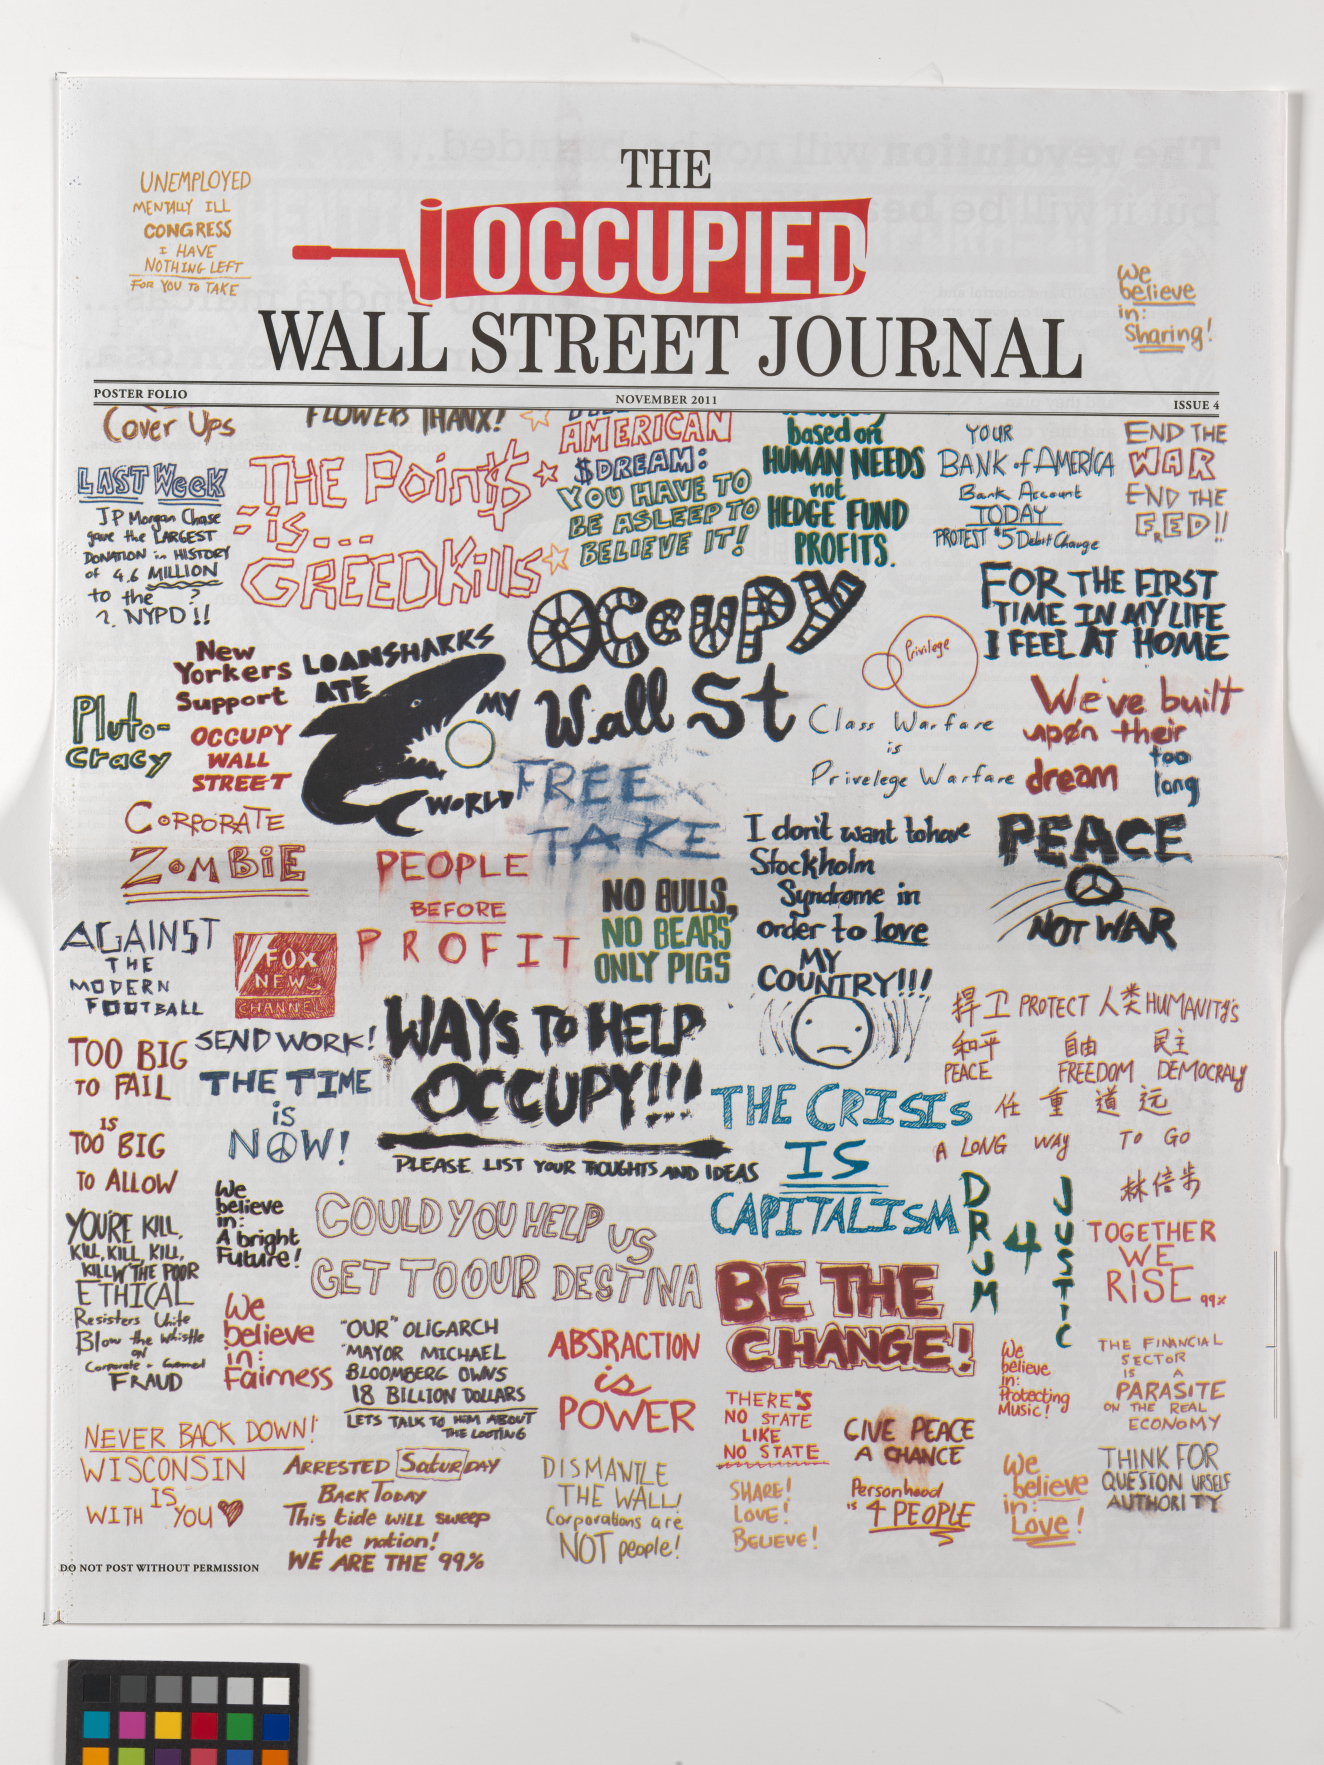 THE
OCCUPIED
WALL STREET JOURNAL
UNEMPLOYED
MENTALLY ILL
CONGRESS
I HAVE
NOTHING LEFT
FOR YOU TO TAKE
We
believe
in:
Sharing!
POSTER FOLIO
NOVEMBER 2011
ISSUE 4
Cover Ups
FLOWERS THANX!
AMERICAN
$DREAM:
YOU HAVE TO
BE ASLEEP TO
BELIEVE IT!
based on
HUMAN NEEDS
not
HEDGE FUND
PROFITS.
YOUR
BANK of AMERICA
Bank Account
TODAY
PROTEST $5 Debit Charge
END THE
WAR
END THE
FED!!
LAST Week
JP Morgan Chase
gave the LARGEST
DONATION in HISTORY
of 4.6 MILLION
to the ?
?. NYPD!!
THE Poin$
is...
GREED Kills
OCCUPY
Wall St
FOR THE FIRST
TIME IN MY LIFE
I FEEL AT HOME
New
Yorkers
Support
OCCUPY
WALL
STREET
LOANSHARKS
ATE
MY
WORLD
Privilege
Class Warfare
is
Privelege Warfare
We've built
upon their
dream
too
long
Pluto-
cracy
FREE
TAKE
CORPORATE
ZOMBIE
PEOPLE
BEFORE
PROFIT
NO BULLS,
NO BEARS
ONLY PIGS
I don't want to have
Stockholm
Syndrome in
order to love
MY
COUNTRY!!!
PEACE
NOT WAR
AGAINST
THE
MODERN
FOOTBALL
FOX
NEWS
CHANNEL
捍卫 PROTECT 人类 HUMANITY's
和平 自由 民主
PEACE FREEDOM DEMOCRALY
任重道远
A LONG WAY TO GO
林倍步
TOO BIG
TO FAIL
IS
TOO BIG
TO ALLOW
SEND WORK!
THE TIME
is
NOW!
WAYS TO HELP
OCCUPY!!!
PLEASE LIST YOUR THOUGHTS AND IDEAS
THE CRISIS
IS
CAPITALISM
DRUM
4
JUSTIC
TOGETHER
WE
RISE
99%
YOU'RE KILL,
KILL, KILL, KILL,
KILL'N THE POOR
ETHICAL
Resisters Unite
Blow the Whistle
on
FRAUD
We
believe
in:
A bright
Future!
COULD YOU HELP US
GET TO OUR DESTINA
BE THE
CHANGE!
We
believe
in:
Fairness
"OUR" OLIGARCH
MAYOR MICHAEL
BLOOMBERG OWNS
18 BILLION DOLLARS
LETS TALK TO HIM ABOUT
THE LOOTING
ABSRACTION
is
POWER
THERE'S
NO STATE
LIKE
NO STATE
GIVE PEACE
A CHANCE
We
believe
in:
Protecting
Music!
THE FINANCIAL
SECTOR
IS A
PARASITE
ON THE REAL
ECONOMY
NEVER BACK DOWN!
WISCONSIN
IS
WITH YOU
ARRESTED SaturDAY
BACK TODAY
This tide will sweep
the nation!
WE ARE THE 99%
DISMANTLE
THE WALL!
Corporations are
NOT people!
SHARE!
LOVE!
BELIEVE!
Personhood
is 4 PEOPLE
We
believe
in:
Love!
THINK FOR
QUESTION URSELF
AUTHORITY
DO NOT POST WITHOUT PERMISSION